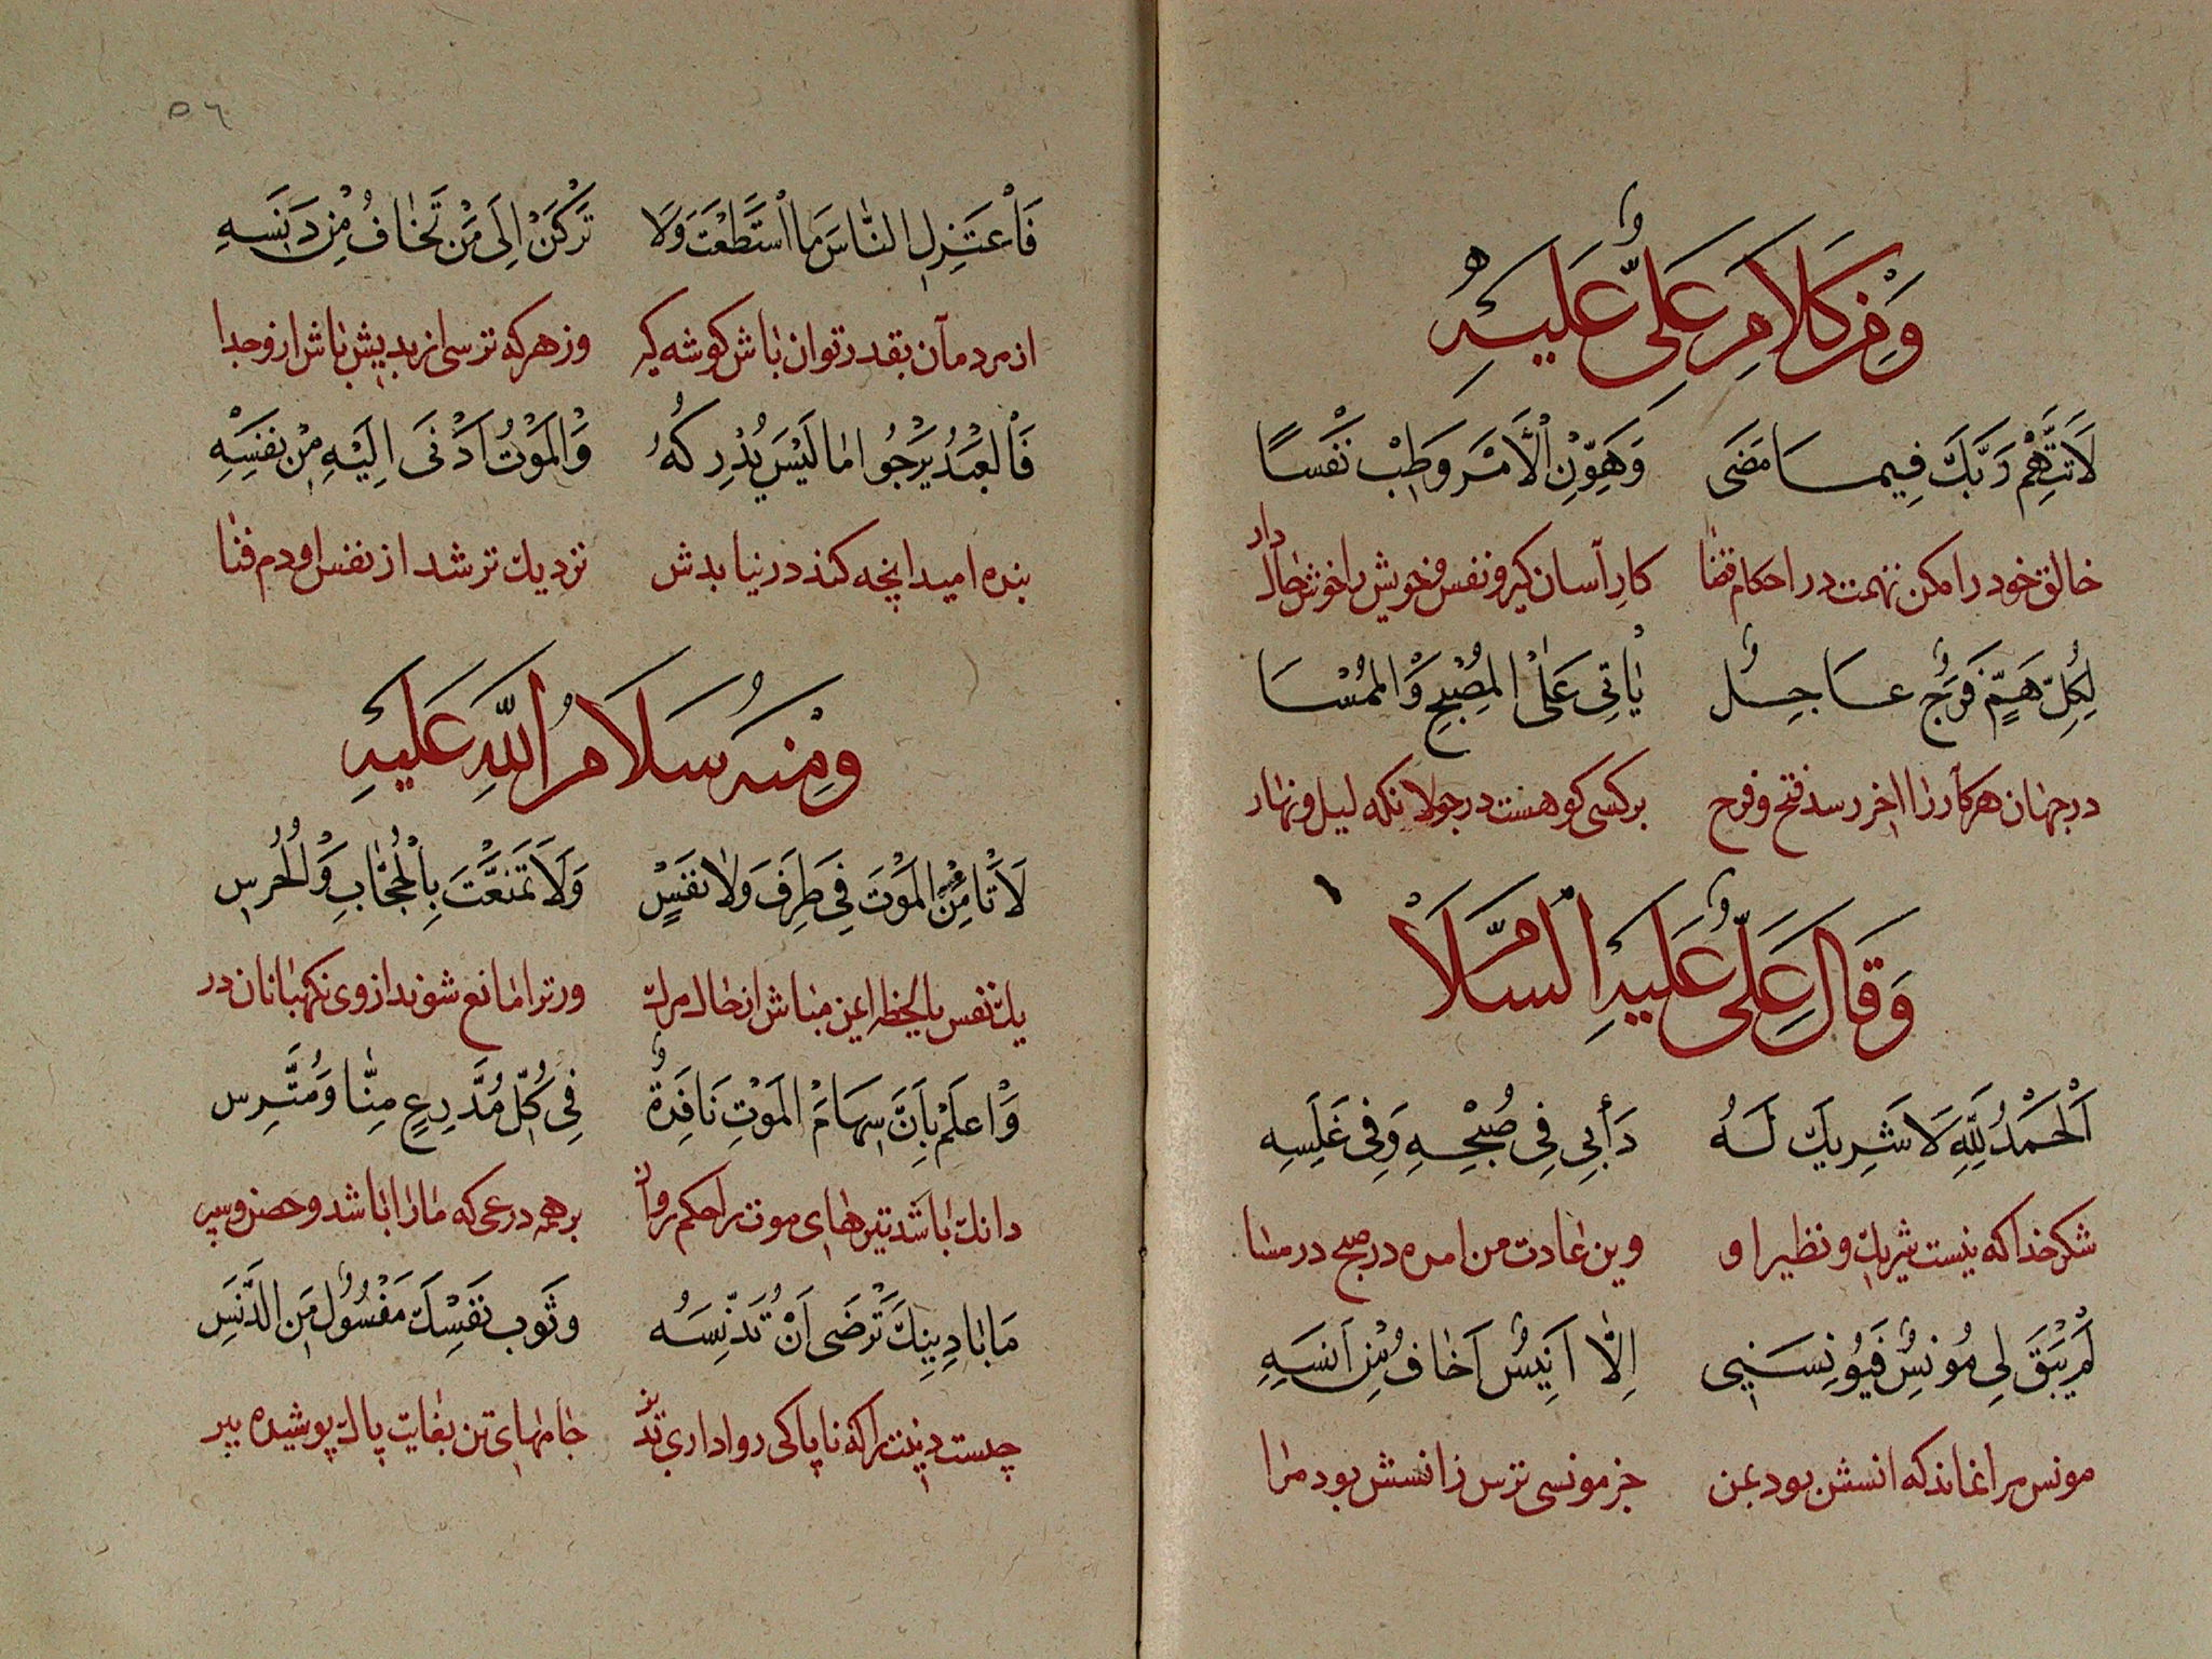 وَمِنْ كَلَامِ عَلِيٍّ عَلَيْهِ
لَا تَتَّهِمْ رَبَّكَ فِيمَا مَضَى وَهَوِّنِ الْأَمْرَ وَطِبْ نَفْسًا
خالق خود را مکن تهمت در احکام قضا کار آسان کیر و نفس خویش را خوش حال دار
لِكُلِّ هَمٍّ فَرَجٌ عَاجِلٌ يَاتِي عَلَى الْمُصْبِحِ وَالْمُمْسَا
در جهان هر کار را اخر رسد فتح و فرح بر کسی کو هست در جولانکه لیل و نهار
وَقَالَ عَلِيٌّ عَلَيْهِ السَّلَامُ
اَلْحَمْدُ لِلَّهِ لَا شَرِيكَ لَهُ دَأْبِي فِي صُبْحِهِ وَفِي غَلَسِهِ
شکر خدا که نیست شریک و نظیر او وین عادت من امده در صبح در مسا
لَمْ يَبْقَ لِي مُونِسٌ فَيُونِسَنِي اِلَّا اَنِيسٌ اَخَافُ مِنْ اَنَسِهِ
مونس مرا نماند که انسش بود بمن جز مونسی ترس ز انسش بود مرا
٥٦
فَاعْتَزِلِ النَّاسَ مَا اسْتَطَعْتَ وَلَا تَرْكَنْ اِلَى مَنْ تَخَافُ مِنْ دَنَسِهِ
از مردمان بقدر توان باش کوشه کیر وز هر که ترسی از بدیش باش ازو جدا
فَالْعَبْدُ يَرْجُوا مَا لَيْسَ يُدْرِكُهُ وَالْمَوْتُ اَدْنَى اِلَيْهِ مِنْ نَفَسِهِ
بنده امید انچه کند در نیابدش نزدیک تر شد از نفس او دم فنا
وَمِنْهُ سَلَامُ اللَّهِ عَلَيْهِ
لَا تَأْمَنِ الْمَوْتَ فِي طَرَفٍ وَلَا نَفَسٍ وَلَا تَمَنَّعْتَ بِالْحُجَّابِ وَالْحَرَسِ
یک نفس یا لحظه ایمن مباش از حال مرک ور ترا مانع شوند از وی نکهبانان در
وَاعْلَمْ بِاَنَّ سِهَامَ الْمَوْتِ نَافِذَةٌ فِي كُلِّ مُدَّرِعٍ مِنَّا وَمُتَّرِسِ
دانک باشد تیرهای موت را حکم روان بر همه درعی که ما را باشد و حصن و سپر
مَا بَا دِينِكَ تَرْضَى اَنْ تُدَنِّسَهُ وَثَوْبُ نَفْسِكَ مَغْسُولٌ مِنَ الدَّنَسِ
چیست دینت را که ناپاکی روا داری جامهای تن بغایت پاک پوشیده ببر